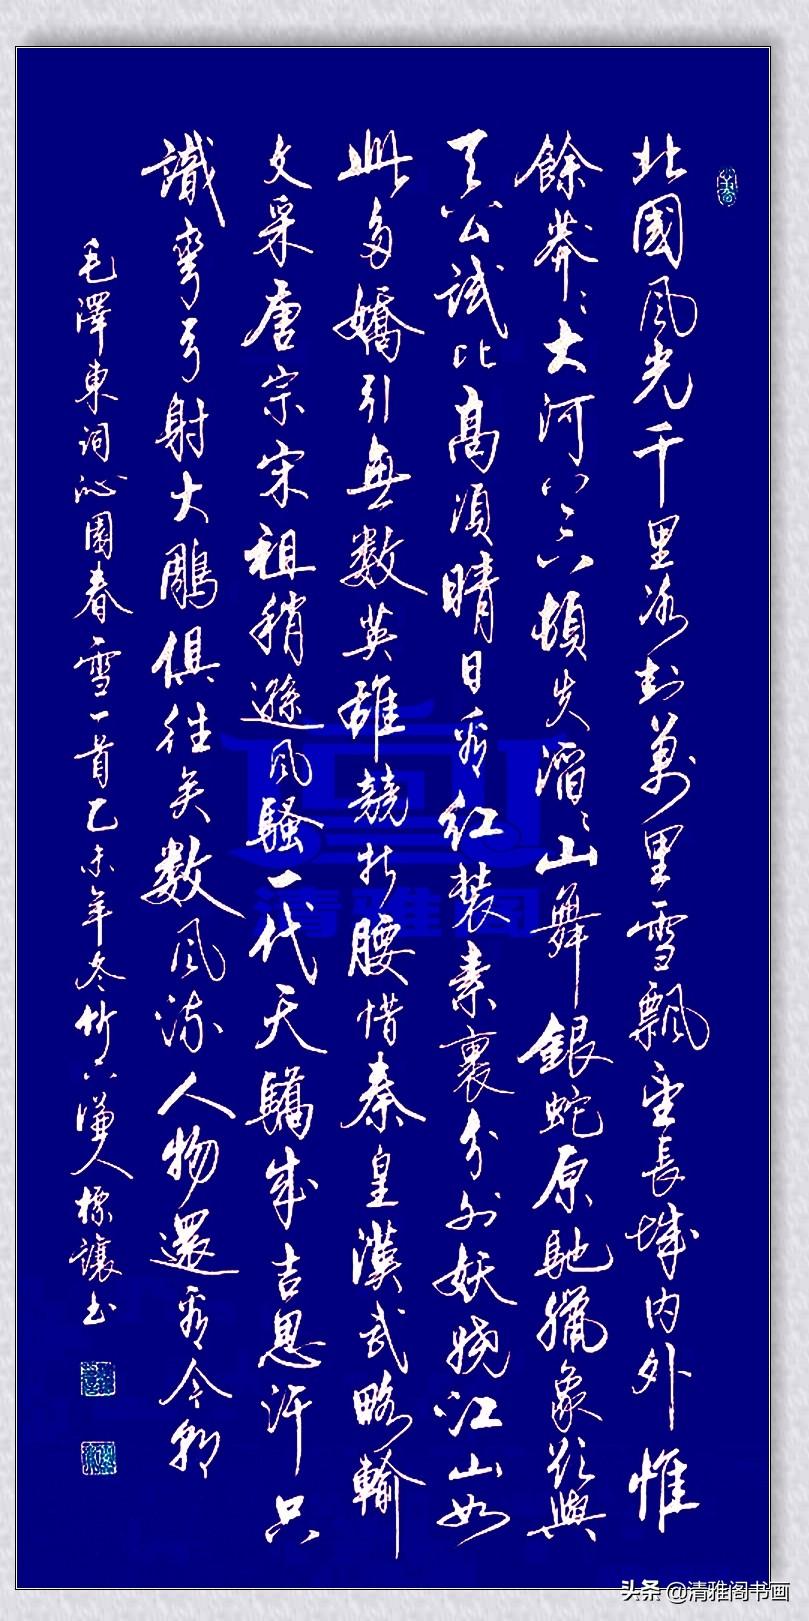 北國风光千里冰封萬里雪飄望長城内外惟
餘莽〻大河上下頓失滔〻山舞銀蛇原馳臘象欲與
天公試比高须晴日看红装素裹分外妖娆江山如
此多嬌引無数英雄競折腰惜秦皇漢武略輸
文采唐宗宋祖稍遜风騷一代天驕成吉思汗只
識彎弓射大鵰俱往矣数风流人物還看今朝
毛澤東词沁園春雪一首乙未年冬竹人標讓书
清雅阁
头条 @清雅阁书画